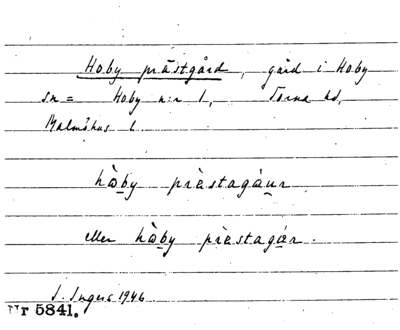 Hoby prästgård, gård i Hoby
sn = Hoby n:r 1, Torna hd,
Malmöhus l.
hòby prèstagáur
eller hòby prèstagár.
S. Ingers 1946
Nr 5841.